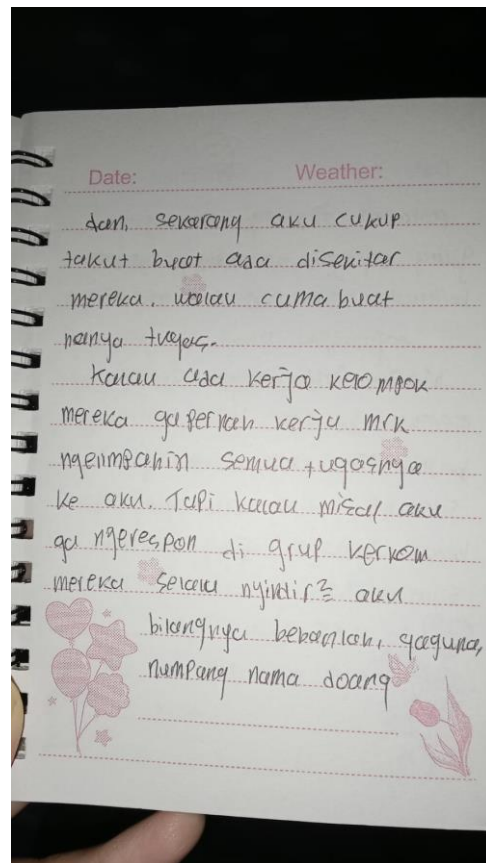 Date: Weather:
dan, sekarang aku cukup
takut buat ada disekitar
mereka. walau cuma buat
nanya tugas.
Kalau ada kerja kelompok
mereka ga pernah kerja mrk
ngelimpahin semua tugasnya
ke aku. Tapi kalau misal aku
ga ngerespon di grup kerkom
mereka selalu nyindir2 aku
bilangnya bebanlah, gaguna,
numpang nama doang